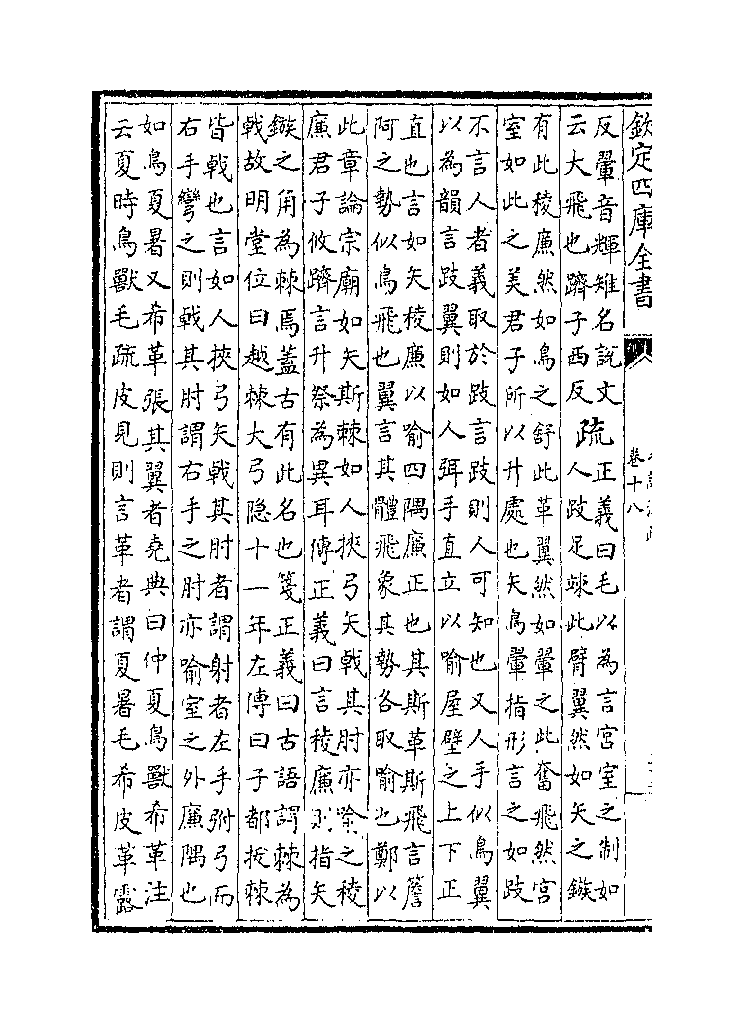 欽定四庫全書
卷十八
反翬音輝雉名說文
云大飛也躋子西反
疏
正義曰毛以為言宮室之制如
人跂足竦此臂翼然如矢之鏃
有此稜廉然如鳥之舒此革翼然如翬之此奮飛然宮
室如此之美君子所以升處也矢鳥翬指形言之如跂
不言人者義取於跂言跂則人可知也又人手似鳥翼
以為韻言跂翼則如人弭手直立以喻屋壁之上下正
直也言如矢稜廉以喻四隅廉正也其斯革斯飛言簷
阿之勢似鳥飛也翼言其體飛象其勢各取喻也鄭以
此章論宗廟如矢斯棘如人挾弓矢戟其肘亦喻之稜
廉君子攸躋言升祭為異耳傳正義曰言稜廉則指矢
鏃之角為棘焉蓋古有此名也箋正義曰古語謂棘為
戟故明堂位曰越棘大弓隱十一年左傳曰子都拔棘
皆戟也言如人挾弓矢戟其肘者謂射者左手弣弓而
右手彎之則戟其肘謂右手之肘亦喻室之外廉隅也
如鳥夏暑又希革張其翼者堯典曰仲夏鳥獸希革注
云夏時鳥獸毛疏皮見則言革者謂夏暑毛希皮革露